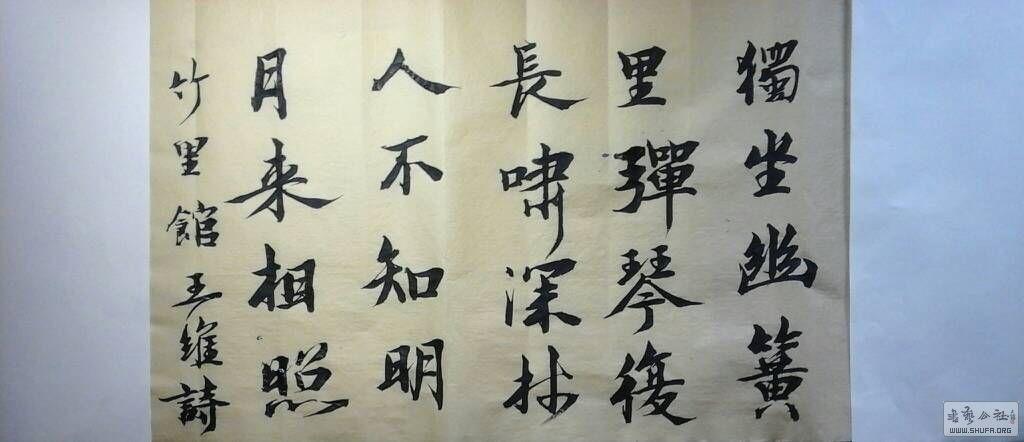 獨坐幽簧
里彈琴復
長嘯深林
人不知明
月来相照
竹里館王維詩
书艺公社
WWW.SHUFA.ORG